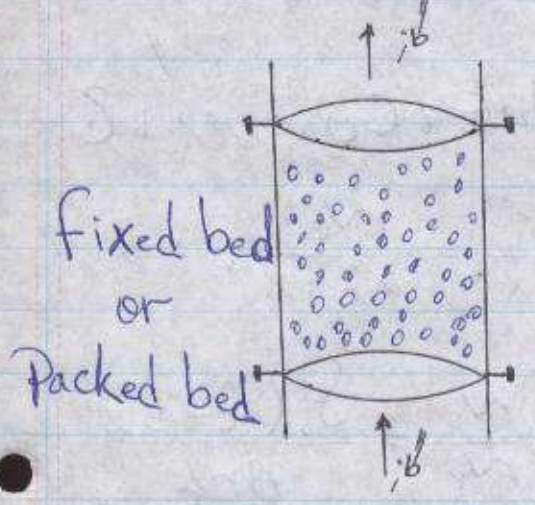 fixed bed
or
Packed bed